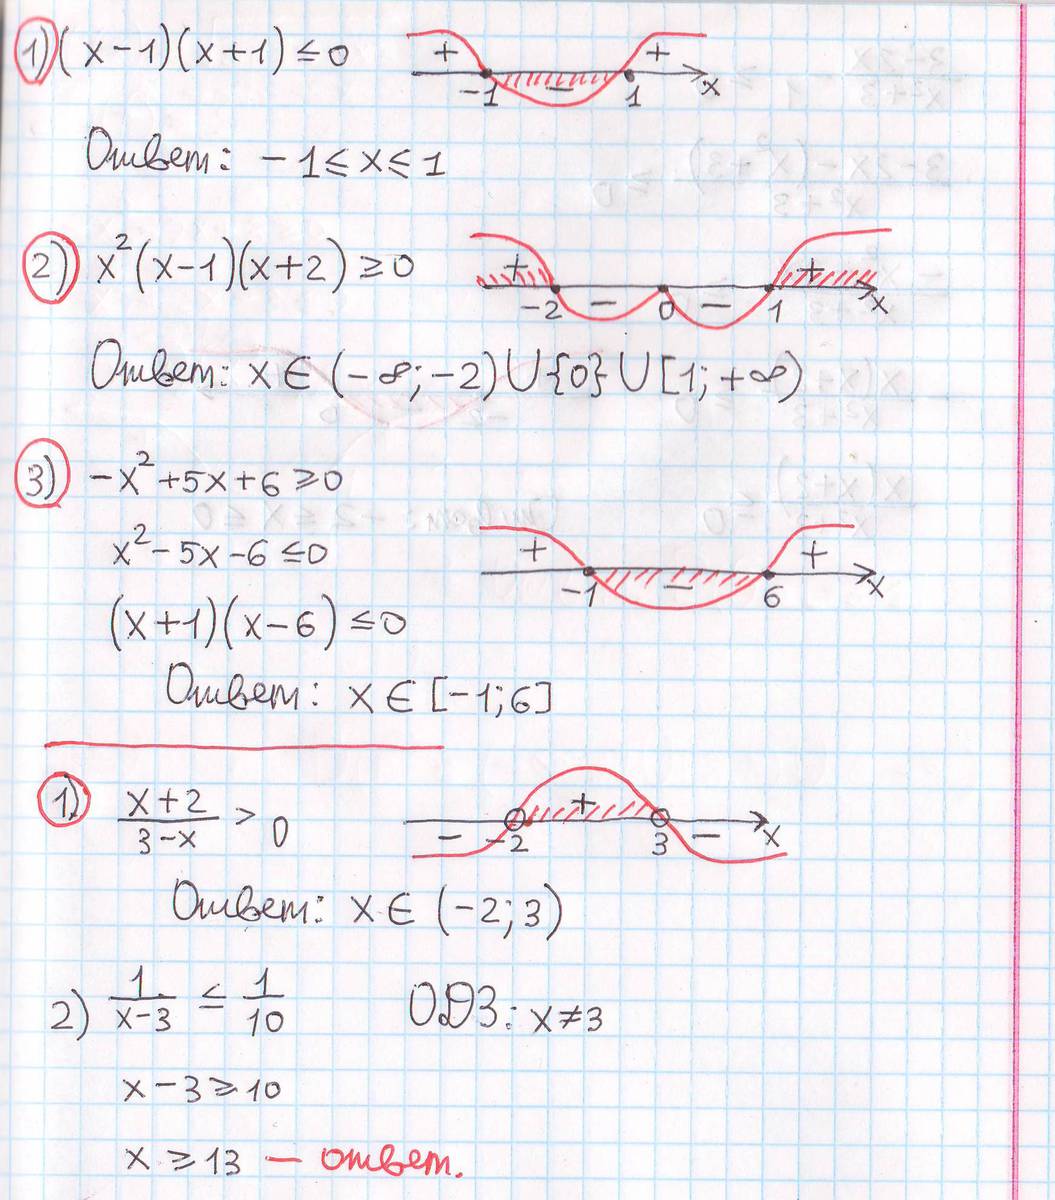 1) (x-1)(x+1) ≤ 0
+ − +
-1 1 x
Ответ: -1 ≤ x ≤ 1
2) x²(x-1)(x+2) ≥ 0
+ − − +
-2 0 1 x
Ответ: x ∈ (-∞; -2) ∪ {0} ∪ [1; +∞)
3) -x²+5x+6 ≥ 0
x²-5x-6 ≤ 0
+ − +
-1 6 x
(x+1)(x-6) ≤ 0
Ответ: x ∈ [-1; 6]
1) (x+2)/(3-x) > 0
− + −
-2 3 x
Ответ: x ∈ (-2; 3)
2) 1/(x-3) ≤ 1/10 ОДЗ: x ≠ 3
x-3 ≥ 10
x ≥ 13 — ответ.